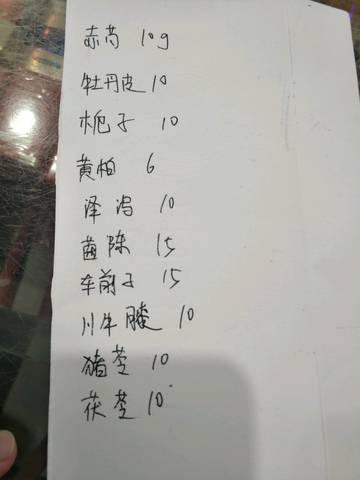 赤芍 10g
牡丹皮 10
栀子 10
黄柏 6
泽泻 10
茵陈 15
车前子 15
川牛膝 10
猪苓 10
茯苓 10